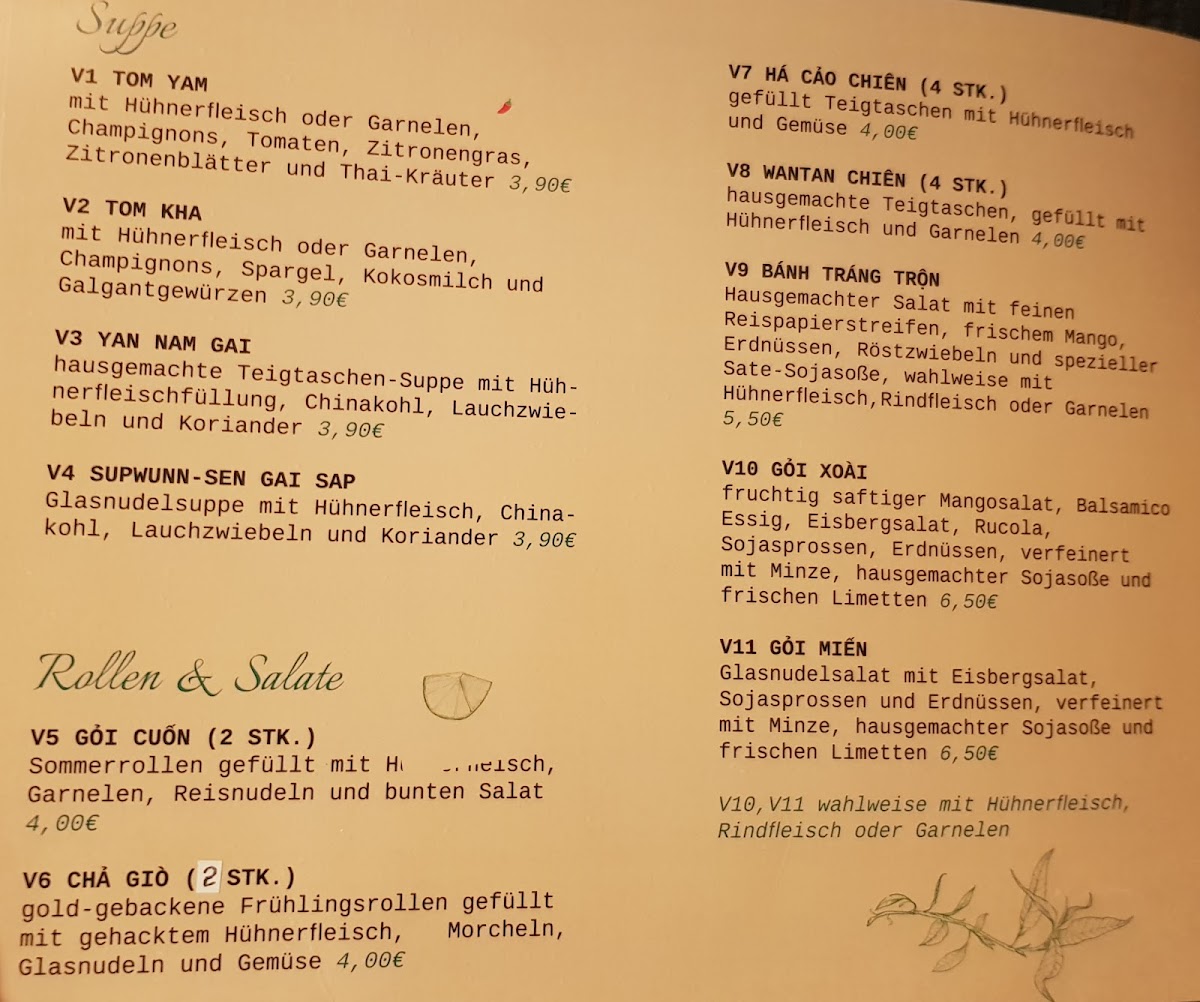 Suppe
V1 TOM YAM
mit Hühnerfleisch oder Garnelen,
Champignons, Tomaten, Zitronengras,
Zitronenblätter und Thai-Kräuter 3,90€
V2 TOM KHA
mit Hühnerfleisch oder Garnelen,
Champignons, Spargel, Kokosmilch und
Galgantgewürzen 3,90€
V3 YAN NAM GAI
hausgemachte Teigtaschen-Suppe mit Hüh-
nerfleischfüllung, Chinakohl, Lauchzwie-
beln und Koriander 3,90€
V4 SUPWUNN-SEN GAI SAP
Glasnudelsuppe mit Hühnerfleisch, China-
kohl, Lauchzwiebeln und Koriander 3,90€
Rollen & Salate
V5 GỎI CUỐN (2 STK.)
Sommerrollen gefüllt mit
Garnelen, Reisnudeln und bunten Salat
4,00€
V6 CHẢ GIÒ (2 STK.)
gold-gebackene Frühlingsrollen gefüllt
mit gehacktem Hühnerfleisch, Morcheln,
Glasnudeln und Gemüse 4,00€
V7 HÁ CẢO CHIÊN (4 STK.)
gefüllt Teigtaschen mit Hühnerfleisch
und Gemüse 4,00€
V8 WANTAN CHIÊN (4 STK.)
hausgemachte Teigtaschen, gefüllt mit
Hühnerfleisch und Garnelen 4,00€
V9 BÁNH TRÁNG TRỘN
Hausgemachter Salat mit feinen
Reispapierstreifen, frischem Mango,
Erdnüssen, Röstzwiebeln und spezieller
Sate-Sojasoße, wahlweise mit
Hühnerfleisch,Rindfleisch oder Garnelen
5,50€
V10 GỎI XOÀI
fruchtig saftiger Mangosalat, Balsamico
Essig, Eisbergsalat, Rucola,
Sojasprossen, Erdnüssen, verfeinert
mit Minze, hausgemachter Sojasoße und
frischen Limetten 6,50€
V11 GỎI MIẾN
Glasnudelsalat mit Eisbergsalat,
Sojasprossen und Erdnüssen, verfeinert
mit Minze, hausgemachter Sojasoße und
frischen Limetten 6,50€
V10,V11 wahlweise mit Hühnerfleisch,
Rindfleisch oder Garnelen